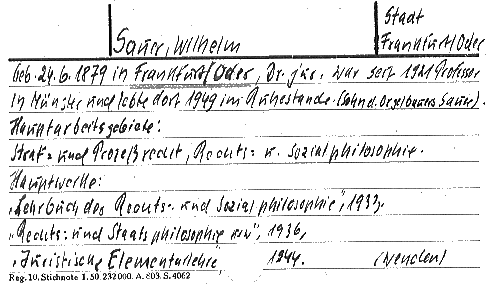 Stadt
Sauer, Wilhelm Frankfurt/Oder
Geb. 24.6.1879 in Frankfurt/Oder, Dr. jur. war seit 1921 Professor
in Münster und lebte dort 1949 im Ruhestande. (Sohn d. Orgelbauers Sauer).
Hauptarbeitsgebiete:
Straf- und Prozeßrecht, Rechts- u. Sozialphilosophie.
Hauptwerke:
„Lehrbuch der Rechts- und Sozialphilosophie", 1933,
„Rechts- und Staatsphilosophie", 1936,
„Juristische Elementarlehre 1944. (wenden)
Reg. 10, Stichnote 1. 50 232000. A. 803. S. 4062